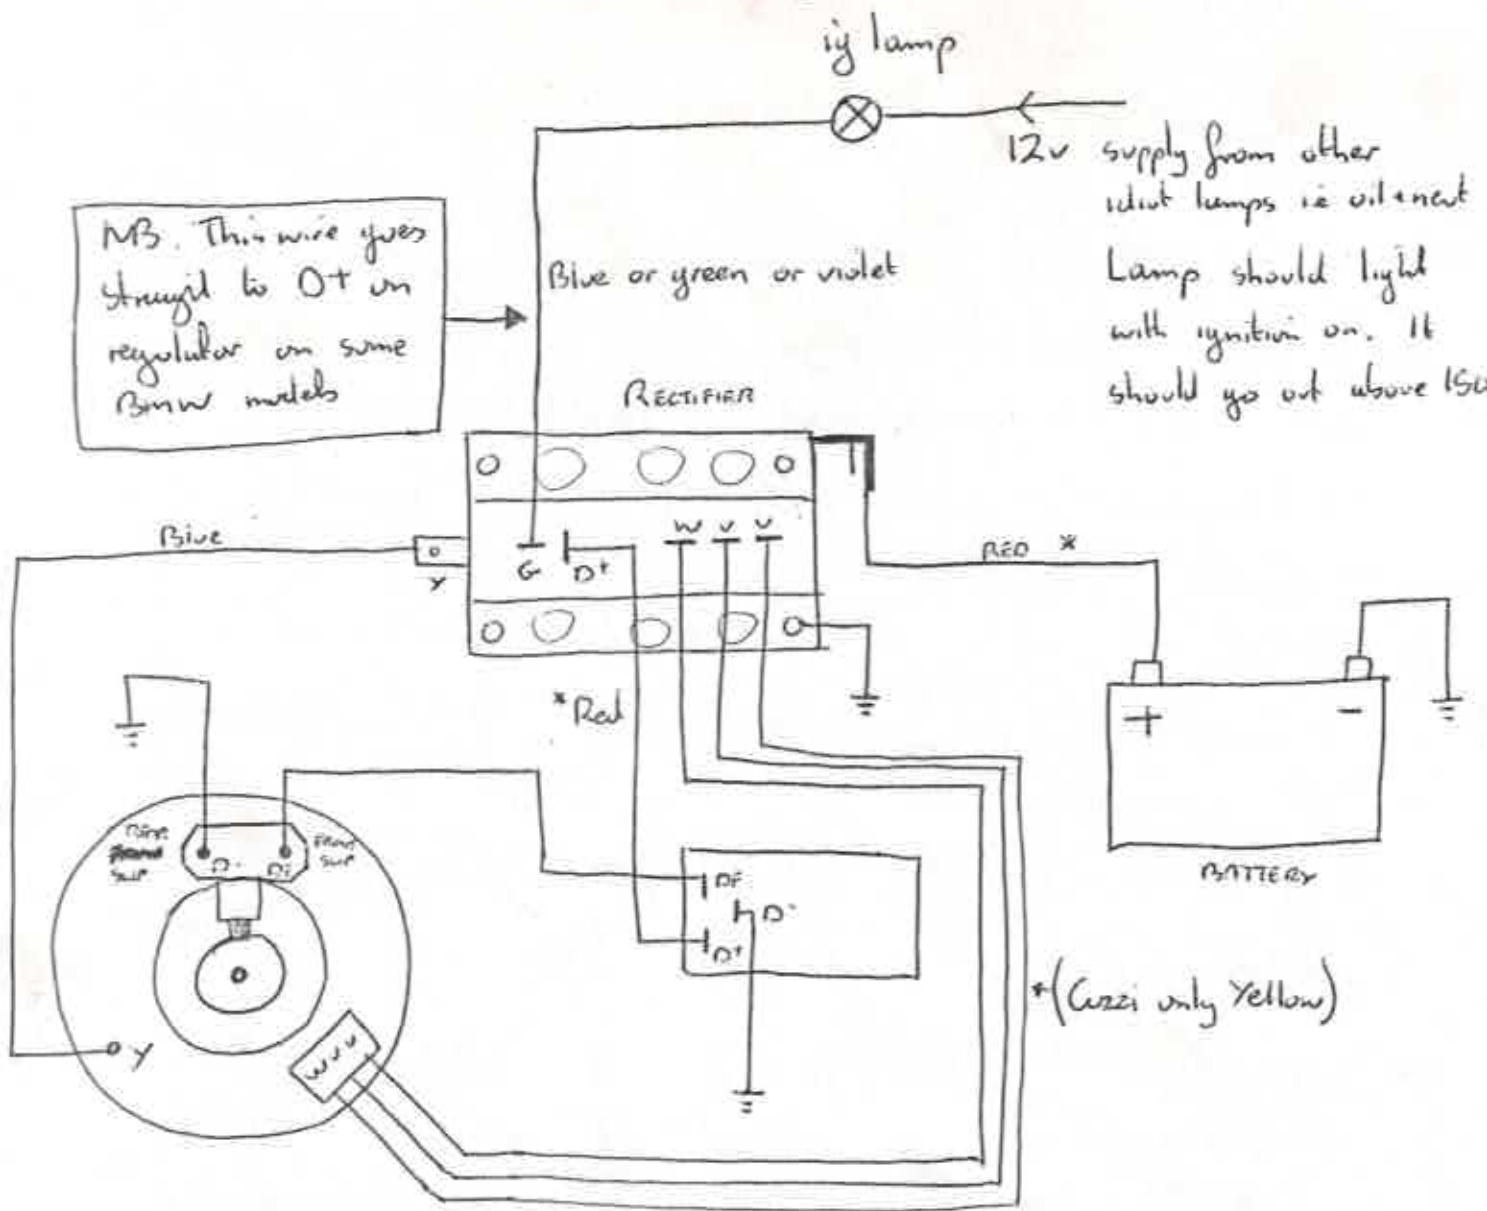 ig lamp
12v supply from other
idiot lamps ie oil + neut
Lamp should light
with ignition on. It
should go out above
NB. This wire goes
straight to D+ on
regulator on some
BMW models
Blue or green or violet
RECTIFIER
Blue
Y
G
D+
W V U
RED *
*Red
+
-
BATTERY
SLIP
D-
DF
FRONT
SLIP
DF
D-
D+
Y
W V U
*(Guzzi only Yellow)